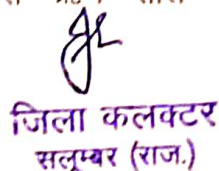 जिला कलक्टर
सलूम्बर (राज.)